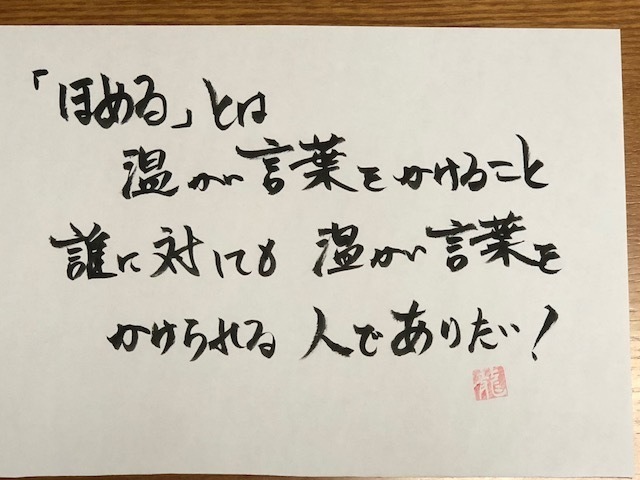 「ほめる」とは
温かい言葉をかけること
誰に対しても 温かい言葉を
かけられる 人でありたい！
龍